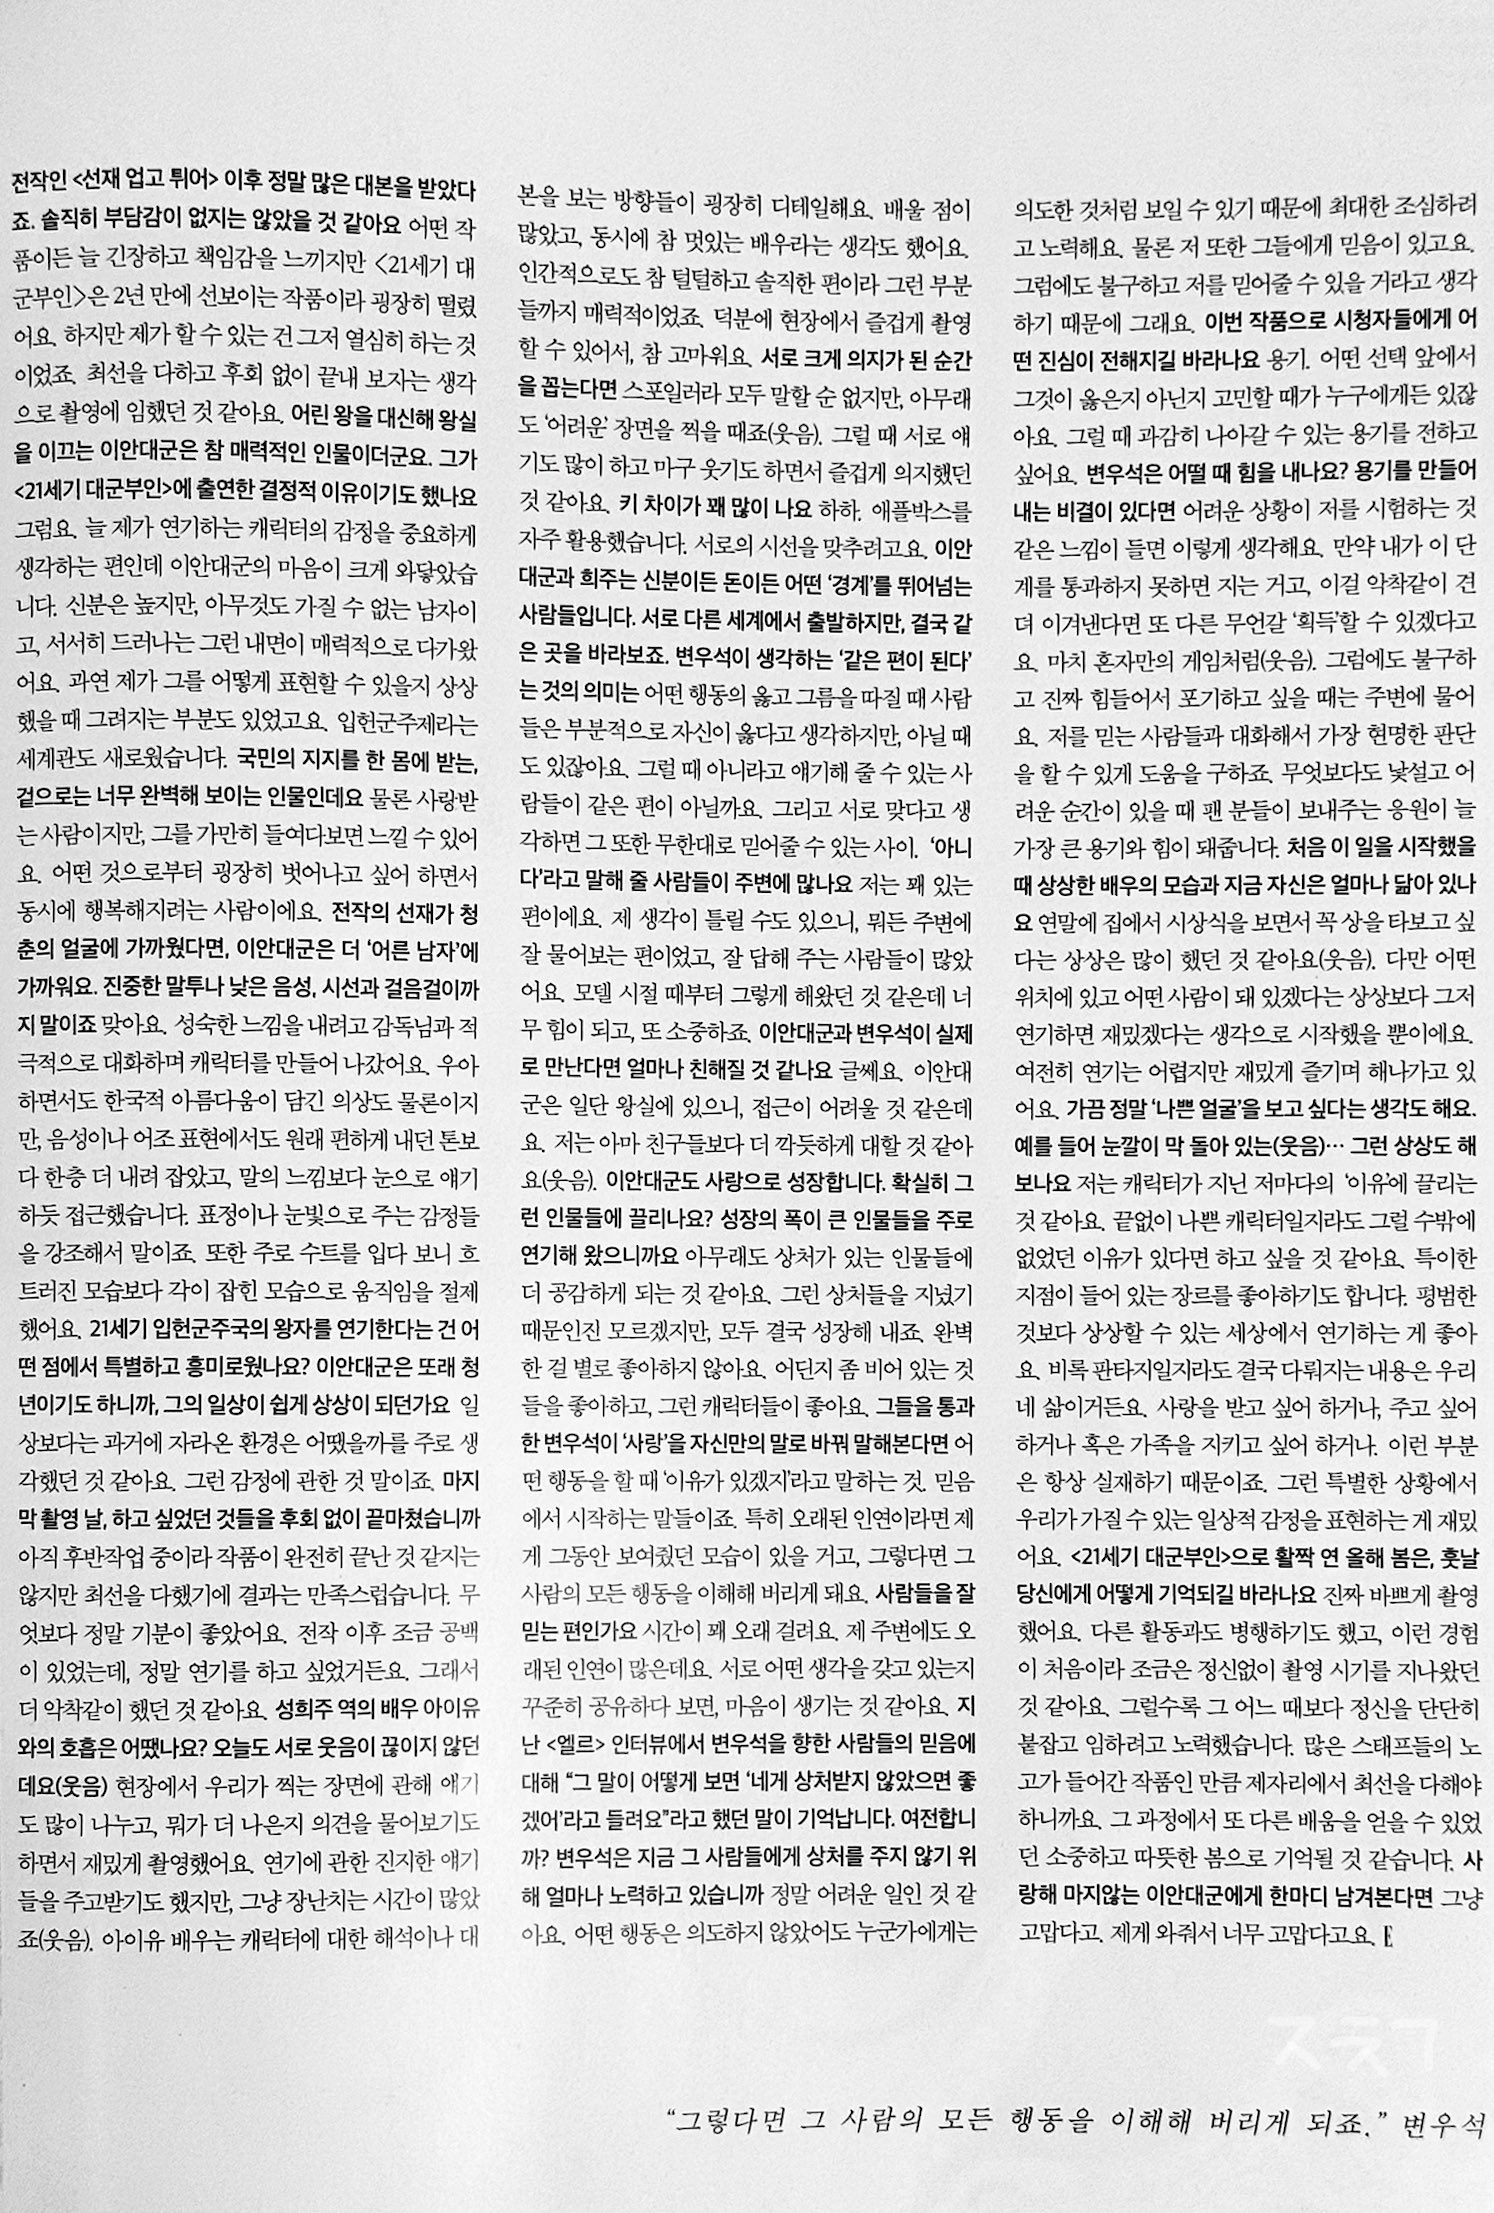 전작인 <선재 업고 튀어> 이후 정말 많은 대본을 받았다
죠. 솔직히 부담감이 없지는 않았을 것 같아요 어떤 작
품이든 늘 긴장하고 책임감을 느끼지만 <21세기 대
군부인>은 2년 만에 선보이는 작품이라 굉장히 떨렸
어요. 하지만 제가 할 수 있는 건 그저 열심히 하는 것
이었죠. 최선을 다하고 후회 없이 끝내 보자는 생각
으로 촬영에 임했던 것 같아요. 어린 왕을 대신해 왕실
을 이끄는 이안대군은 참 매력적인 인물이더군요. 그가
<21세기 대군부인>에 출연한 결정적 이유이기도 했나요
그럼요. 늘 제가 연기하는 캐릭터의 감정을 중요하게
생각하는 편인데 이안대군의 마음이 크게 와닿았습
니다. 신분은 높지만, 아무것도 가질 수 없는 남자이
고, 서서히 드러나는 그런 내면이 매력적으로 다가왔
어요. 과연 제가 그를 어떻게 표현할 수 있을지 상상
했을 때 그려지는 부분도 있었고요. 입헌군주제라는
세계관도 새로웠습니다. 국민의 지지를 한 몸에 받는,
겉으로는 너무 완벽해 보이는 인물인데요 물론 사랑받
는 사람이지만, 그를 가만히 들여다보면 느낄 수 있어
요. 어떤 것으로부터 굉장히 벗어나고 싶어 하면서
동시에 행복해지려는 사람이에요. 전작의 선재가 청
춘의 얼굴에 가까웠다면, 이안대군은 더 ‘어른 남자’에
가까워요. 진중한 말투나 낮은 음성, 시선과 걸음걸이까
지 말이죠 맞아요. 성숙한 느낌을 내려고 감독님과 적
극적으로 대화하며 캐릭터를 만들어 나갔어요. 우아
하면서도 한국적 아름다움이 담긴 의상도 물론이지
만, 음성이나 어조 표현에서도 원래 편하게 내던 톤보
다 한층 더 내려 잡았고, 말의 느낌보다 눈으로 얘기
하듯 접근했습니다. 표정이나 눈빛으로 주는 감정들
을 강조해서 말이죠. 또한 주로 수트를 입다 보니 흐
트러진 모습보다 각이 잡힌 모습으로 움직임을 절제
했어요. 21세기 입헌군주국의 왕자를 연기한다는 건 어
떤 점에서 특별하고 흥미로웠나요? 이안대군은 또래 청
년이기도 하니까, 그의 일상이 쉽게 상상이 되던가요 일
상보다는 과거에 자라온 환경은 어땠을까를 주로 생
각했던 것 같아요. 그런 감정에 관한 것 말이죠. 마지
막 촬영 날, 하고 싶었던 것들을 후회 없이 끝마쳤습니까
아직 후반작업 중이라 작품이 완전히 끝난 것 같지는
않지만 최선을 다했기에 결과는 만족스럽습니다. 무
엇보다 정말 기분이 좋았어요. 전작 이후 조금 공백
이 있었는데, 정말 연기를 하고 싶었거든요. 그래서
더 악착같이 했던 것 같아요. 성희주 역의 배우 아이유
와의 호흡은 어땠나요? 오늘도 서로 웃음이 끊이지 않던
데요(웃음) 현장에서 우리가 찍는 장면에 관해 얘기
도 많이 나누고, 뭐가 더 나은지 의견을 물어보기도
하면서 재밌게 촬영했어요. 연기에 관한 진지한 얘기
들을 주고받기도 했지만, 그냥 장난치는 시간이 많았
죠(웃음). 아이유 배우는 캐릭터에 대한 해석이나 대
본을 보는 방향들이 굉장히 디테일해요. 배울 점이
많았고, 동시에 참 멋있는 배우라는 생각도 했어요.
인간적으로도 참 털털하고 솔직한 편이라 그런 부분
들까지 매력적이었죠. 덕분에 현장에서 즐겁게 촬영
할 수 있어서, 참 고마워요. 서로 크게 의지가 된 순간
을 꼽는다면 스포일러라 모두 말할 순 없지만, 아무래
도 ‘어려운’ 장면을 찍을 때죠(웃음). 그럴 때 서로 얘
기도 많이 하고 마구 웃기도 하면서 즐겁게 의지했던
것 같아요. 키 차이가 꽤 많이 나요 하하. 애플박스를
자주 활용했습니다. 서로의 시선을 맞추려고요. 이안
대군과 희주는 신분이든 돈이든 어떤 ‘경계’를 뛰어넘는
사람들입니다. 서로 다른 세계에서 출발하지만, 결국 같
은 곳을 바라보죠. 변우석이 생각하는 ‘같은 편이 된다’
는 것의 의미는 어떤 행동의 옳고 그름을 따질 때 사람
들은 부분적으로 자신이 옳다고 생각하지만, 아닐 때
도 있잖아요. 그럴 때 아니라고 얘기해 줄 수 있는 사
람들이 같은 편이 아닐까요. 그리고 서로 맞다고 생
각하면 그 또한 무한대로 믿어줄 수 있는 사이. ‘아니
다’라고 말해 줄 사람들이 주변에 많나요 저는 꽤 있는
편이에요. 제 생각이 틀릴 수도 있으니, 뭐든 주변에
잘 물어보는 편이었고, 잘 답해 주는 사람들이 많았
어요. 모델 시절 때부터 그렇게 해왔던 것 같은데 너
무 힘이 되고, 또 소중하죠. 이안대군과 변우석이 실제
로 만난다면 얼마나 친해질 것 같나요 글쎄요. 이안대
군은 일단 왕실에 있으니, 접근이 어려울 것 같은데
요. 저는 아마 친구들보다 더 깍듯하게 대할 것 같아
요(웃음). 이안대군도 사랑으로 성장합니다. 확실히 그
런 인물들에 끌리나요? 성장의 폭이 큰 인물들을 주로
연기해 왔으니까요 아무래도 상처가 있는 인물들에
더 공감하게 되는 것 같아요. 그런 상처들을 지녔기
때문인진 모르겠지만, 모두 결국 성장해 내죠. 완벽
한 걸 별로 좋아하지 않아요. 어딘지 좀 비어 있는 것
들을 좋아하고, 그런 캐릭터들이 좋아요. 그들을 통과
한 변우석이 ‘사랑’을 자신만의 말로 바꿔 말해본다면 어
떤 행동을 할 때 ‘이유가 있겠지’라고 말하는 것. 믿음
에서 시작하는 말들이죠. 특히 오래된 인연이라면 제
게 그동안 보여줬던 모습이 있을 거고, 그렇다면 그
사람의 모든 행동을 이해해 버리게 돼요. 사람들을 잘
믿는 편인가요 시간이 꽤 오래 걸려요. 제 주변에도 오
래된 인연이 많은데요. 서로 어떤 생각을 갖고 있는지
꾸준히 공유하다 보면, 마음이 생기는 것 같아요. 지
난 <엘르> 인터뷰에서 변우석을 향한 사람들의 믿음에
대해 “그 말이 어떻게 보면 ‘네게 상처받지 않았으면 좋
겠어’라고 들려요”라고 했던 말이 기억납니다. 여전합니
까? 변우석은 지금 그 사람들에게 상처를 주지 않기 위
해 얼마나 노력하고 있습니까 정말 어려운 일인 것 같
아요. 어떤 행동은 의도하지 않았어도 누군가에게는
의도한 것처럼 보일 수 있기 때문에 최대한 조심하려
고 노력해요. 물론 저 또한 그들에게 믿음이 있고요.
그럼에도 불구하고 저를 믿어줄 수 있을 거라고 생각
하기 때문에 그래요. 이번 작품으로 시청자들에게 어
떤 진심이 전해지길 바라나요 용기. 어떤 선택 앞에서
그것이 옳은지 아닌지 고민할 때가 누구에게든 있잖
아요. 그럴 때 과감히 나아갈 수 있는 용기를 전하고
싶어요. 변우석은 어떨 때 힘을 내나요? 용기를 만들어
내는 비결이 있다면 어려운 상황이 저를 시험하는 것
같은 느낌이 들면 이렇게 생각해요. 만약 내가 이 단
계를 통과하지 못하면 지는 거고, 이걸 악착같이 견
뎌 이겨낸다면 또 다른 무언갈 ‘획득’할 수 있겠다고
요. 마치 혼자만의 게임처럼(웃음). 그럼에도 불구하
고 진짜 힘들어서 포기하고 싶을 때는 주변에 물어
요. 저를 믿는 사람들과 대화해서 가장 현명한 판단
을 할 수 있게 도움을 구하죠. 무엇보다도 낯설고 어
려운 순간이 있을 때 팬 분들이 보내주는 응원이 늘
가장 큰 용기와 힘이 돼줍니다. 처음 이 일을 시작했을
때 상상한 배우의 모습과 지금 자신은 얼마나 닮아 있나
요 연말에 집에서 시상식을 보면서 꼭 상을 타보고 싶
다는 상상은 많이 했던 것 같아요(웃음). 다만 어떤
위치에 있고 어떤 사람이 돼 있겠다는 상상보다 그저
연기하면 재밌겠다는 생각으로 시작했을 뿐이에요.
여전히 연기는 어렵지만 재밌게 즐기며 해나가고 있
어요. 가끔 정말 ‘나쁜 얼굴’을 보고 싶다는 생각도 해요.
예를 들어 눈깔이 막 돌아 있는(웃음)… 그런 상상도 해
보나요 저는 캐릭터가 지닌 저마다의 ‘이유’에 끌리는
것 같아요. 끝없이 나쁜 캐릭터일지라도 그럴 수밖에
없었던 이유가 있다면 하고 싶을 것 같아요. 특이한
지점이 들어 있는 장르를 좋아하기도 합니다. 평범한
것보다 상상할 수 있는 세상에서 연기하는 게 좋아
요. 비록 판타지일지라도 결국 다뤄지는 내용은 우리
네 삶이거든요. 사랑을 받고 싶어 하거나, 주고 싶어
하거나 혹은 가족을 지키고 싶어 하거나. 이런 부분
은 항상 실재하기 때문이죠. 그런 특별한 상황에서
우리가 가질 수 있는 일상적 감정을 표현하는 게 재밌
어요. <21세기 대군부인>으로 활짝 연 올해 봄은, 훗날
당신에게 어떻게 기억되길 바라나요 진짜 바쁘게 촬영
했어요. 다른 활동과도 병행하기도 했고, 이런 경험
이 처음이라 조금은 정신없이 촬영 시기를 지나왔던
것 같아요. 그럴수록 그 어느 때보다 정신을 단단히
붙잡고 임하려고 노력했습니다. 많은 스태프들의 노
고가 들어간 작품인 만큼 제자리에서 최선을 다해야
하니까요. 그 과정에서 또 다른 배움을 얻을 수 있었
던 소중하고 따뜻한 봄으로 기억될 것 같습니다. 사
랑해 마지않는 이안대군에게 한마디 남겨본다면 그냥
고맙다고. 제게 와줘서 너무 고맙다고요. E
“그렇다면 그 사람의 모든 행동을 이해해 버리게 되죠.” 변우석